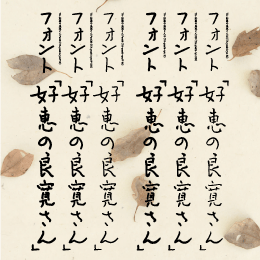 フォント
「好恵の良寛さん」
フォント
「好恵の良寛さん」
フォント
「好恵の良寛さん」
フォント
「好恵の良寛さん」
フォント
「好恵の良寛さん」
フォント
「好恵の良寛さん」